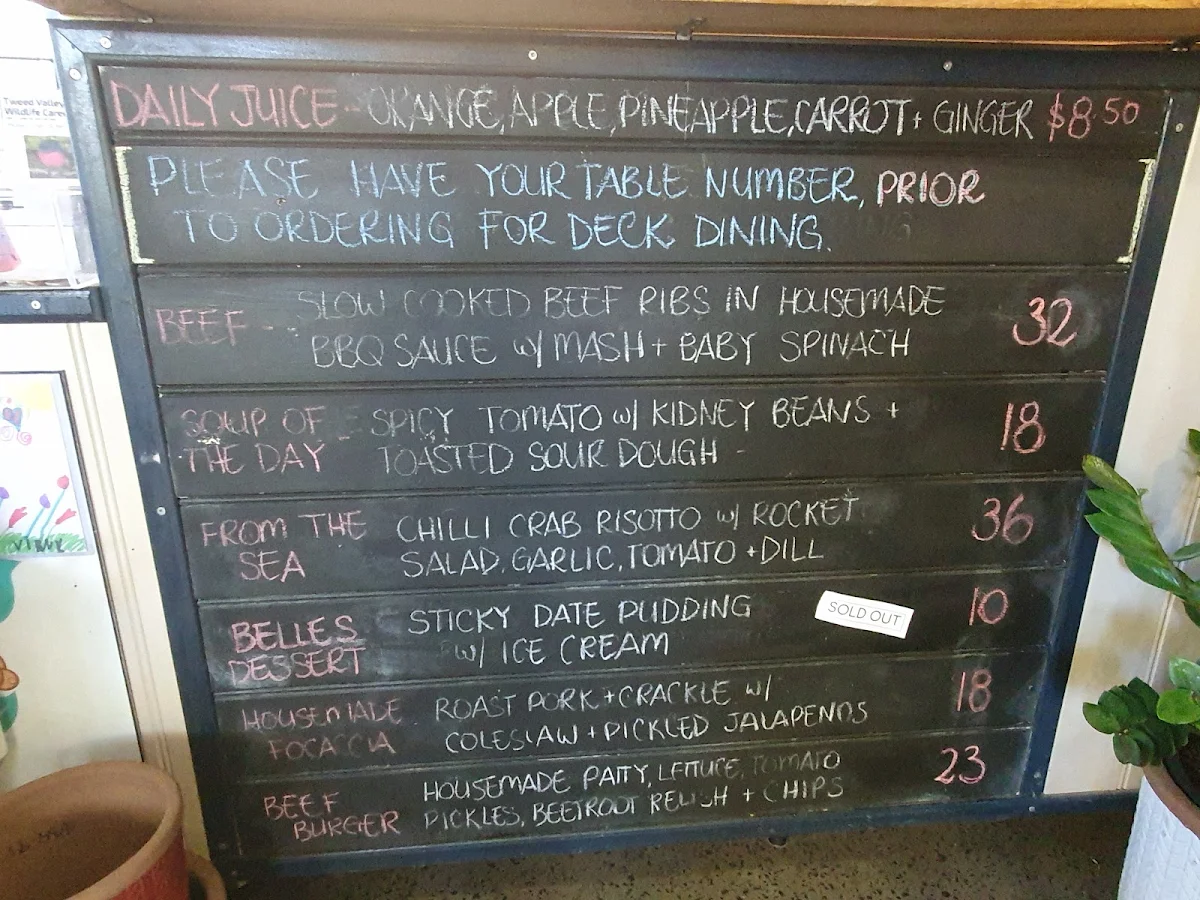 Tweed Valley
Wildlife Carers
DAILY JUICE - ORANGE, APPLE, PINEAPPLE, CARROT + GINGER $8.50
PLEASE HAVE YOUR TABLE NUMBER, PRIOR
TO ORDERING FOR DECK DINING.
BEEF - SLOW COOKED BEEF RIBS IN HOUSEMADE
BBQ SAUCE w/ MASH + BABY SPINACH
32
SOUP OF THE DAY
SPICY TOMATO w/ KIDNEY BEANS +
TOASTED SOUR DOUGH -
18
FROM THE SEA
CHILLI CRAB RISOTTO w/ ROCKET
SALAD, GARLIC, TOMATO + DILL
36
BELLES DESSERT
STICKY DATE PUDDING
w/ ICE CREAM
SOLD OUT
10
HOUSEMADE FOCACCIA
ROAST PORK + CRACKLE w/
COLESLAW + PICKLED JALAPENOS
18
BEEF BURGER
HOUSEMADE PATTY, LETTUCE, TOMATO
PICKLES, BEETROOT RELISH + CHIPS
23